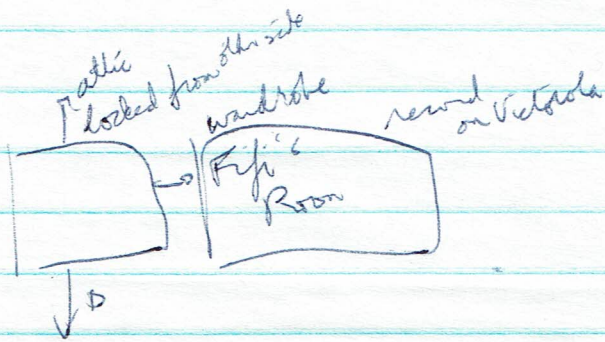 attic
locked from other side
wardrobe
record
on Victrola
Fifi's
Room
D